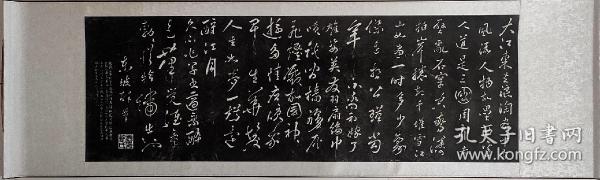 大江東去浪淘盡千古
風流人物故壘西邊
人道是三國周郎赤
壁亂石穿空驚濤
拍岸捲起千堆雪江
山如畫一時多少豪
傑遙想公瑾當
年小喬初嫁了
雄姿英發羽扇綸巾
談笑間檣櫓灰
飛煙滅故國神
遊多情應笑我
早生華髮
人生如夢一樽還
酹江月
久不作草書適乘醉
走筆覺酒氣
勃勃從指端出也
東坡醉筆
孔夫子旧书网
www.kongfz.com